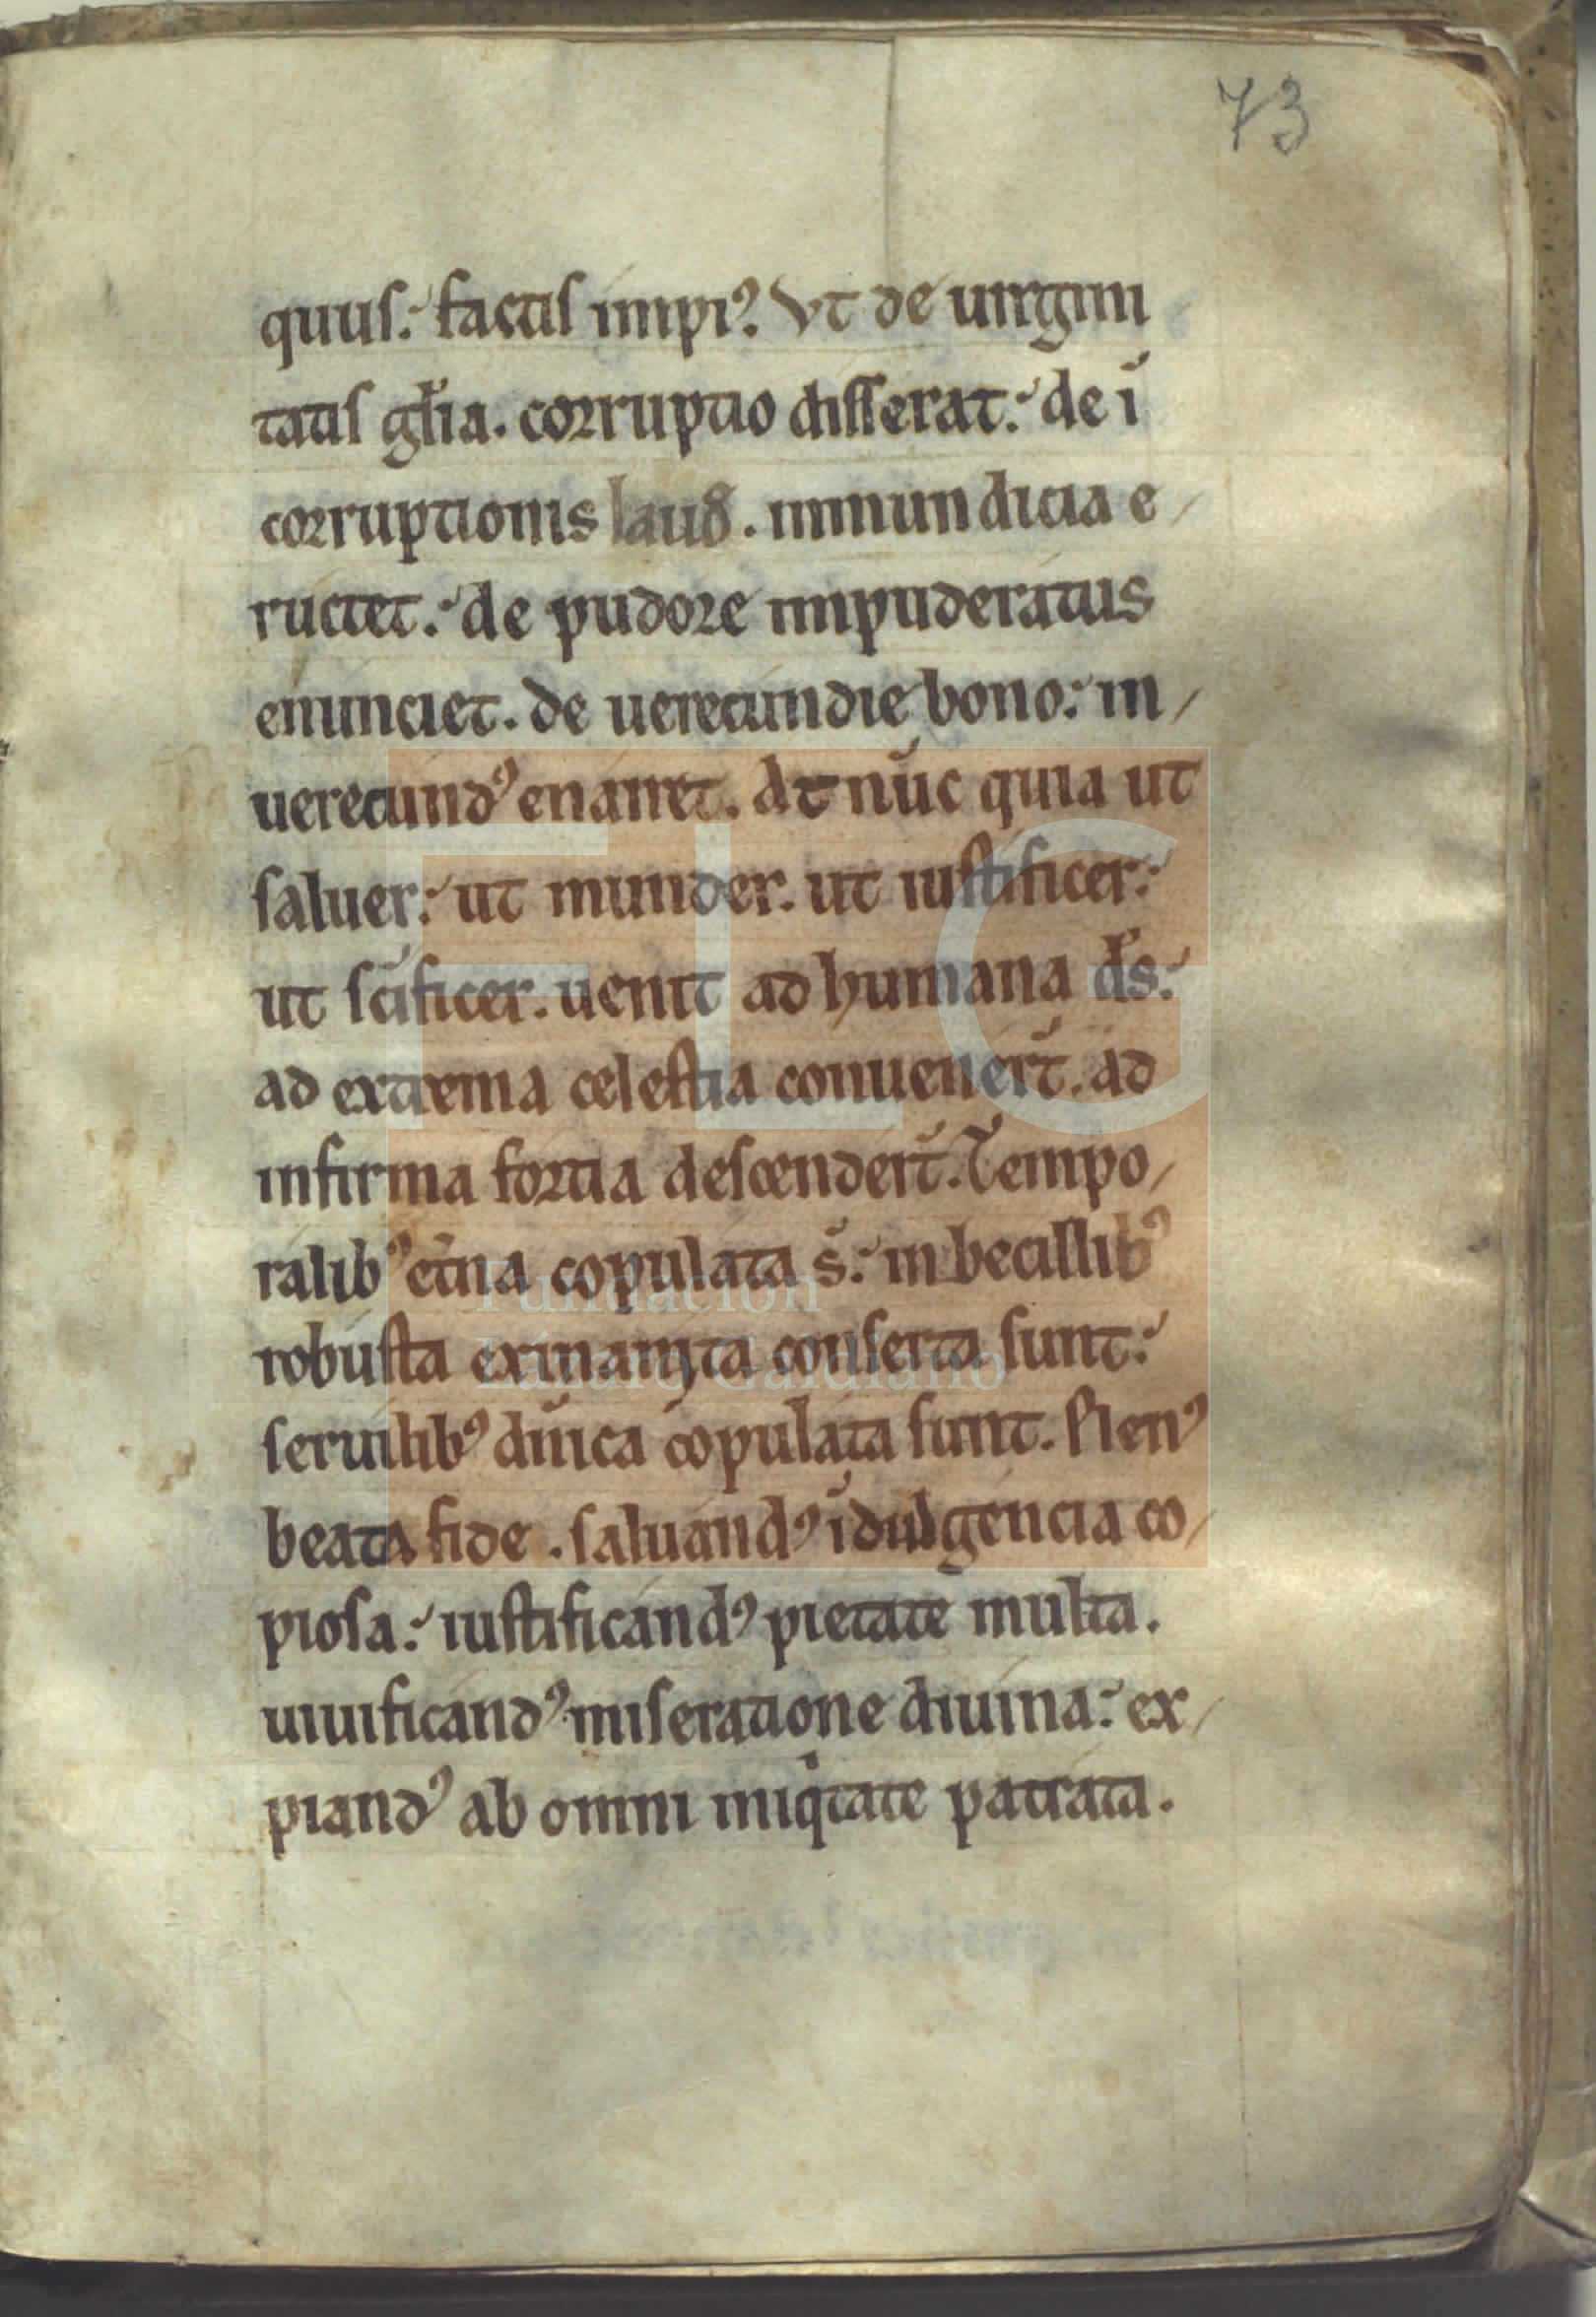 73
quus. factis impiꝰ. Vt de uirgini
tatis glīa. corruptio disserat. de ī
corruptionis laud̄. immundicia e
ructet. de pudore impuderatus
enunciet. de uerecundie bono. in
uerecundꝰ enarret. At nūc quia ut
saluer. ut munder. ut iustificer.
ut sc̄ificer. uenit ad humana d̄s.
ad extrema celestia conuenert̄. ad
infirma fortia descendert̄. Tempo
ralibꝰ et̄na copulata s̄. inbecillibꝰ
robusta exinanita conserta sunt.
seruilibꝰ dn̄ica copulata sunt. Plenꝰ
beata fide. saluandꝰ īdulgencia co
piosa. iustificandꝰ pietate multa.
uiuificandꝰ miseratione diuina. ex
piandꝰ ab omni iniqͥtate patrata.
FLG
Fundación
Lázaro Galdiano